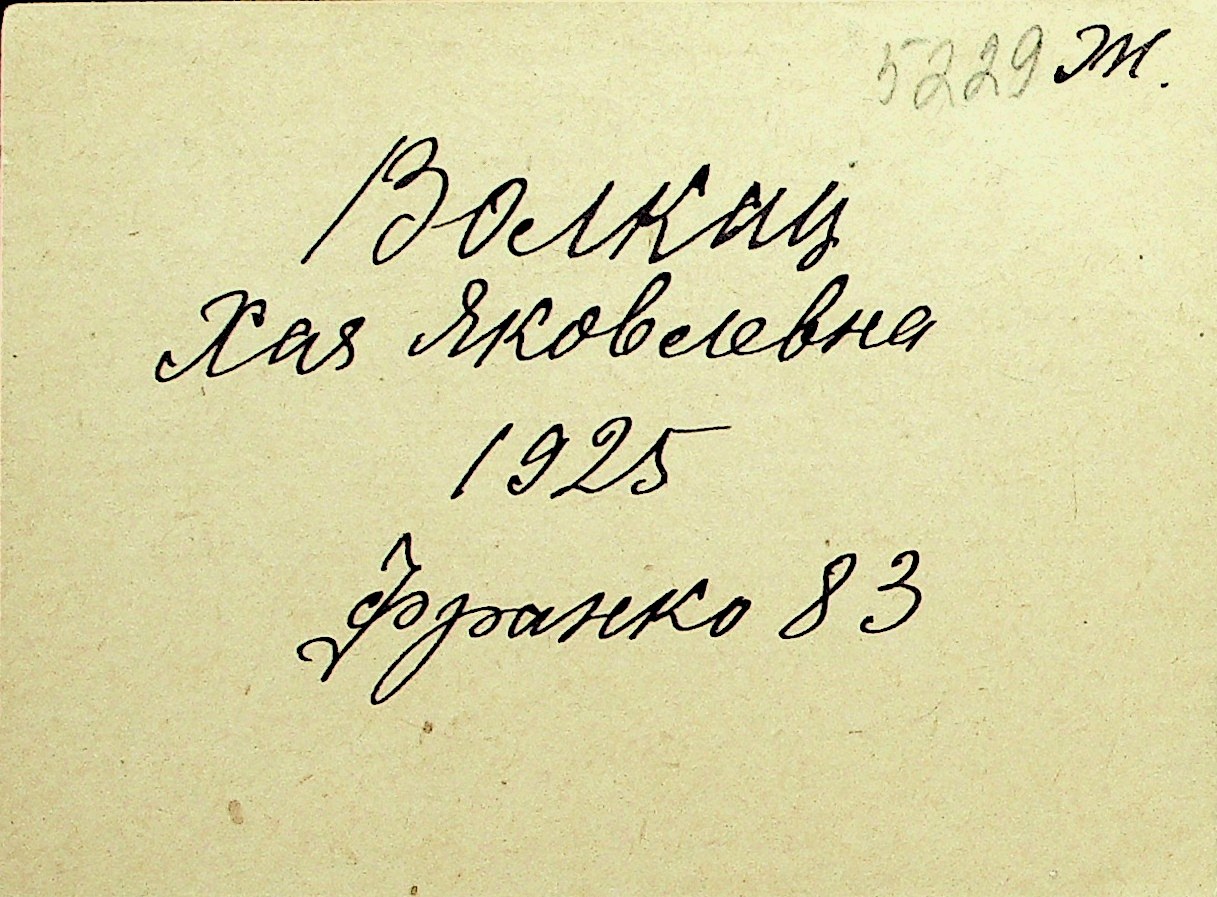 5229 Ж.
Волкац
Хая Яковлевна
1925
Франко 83